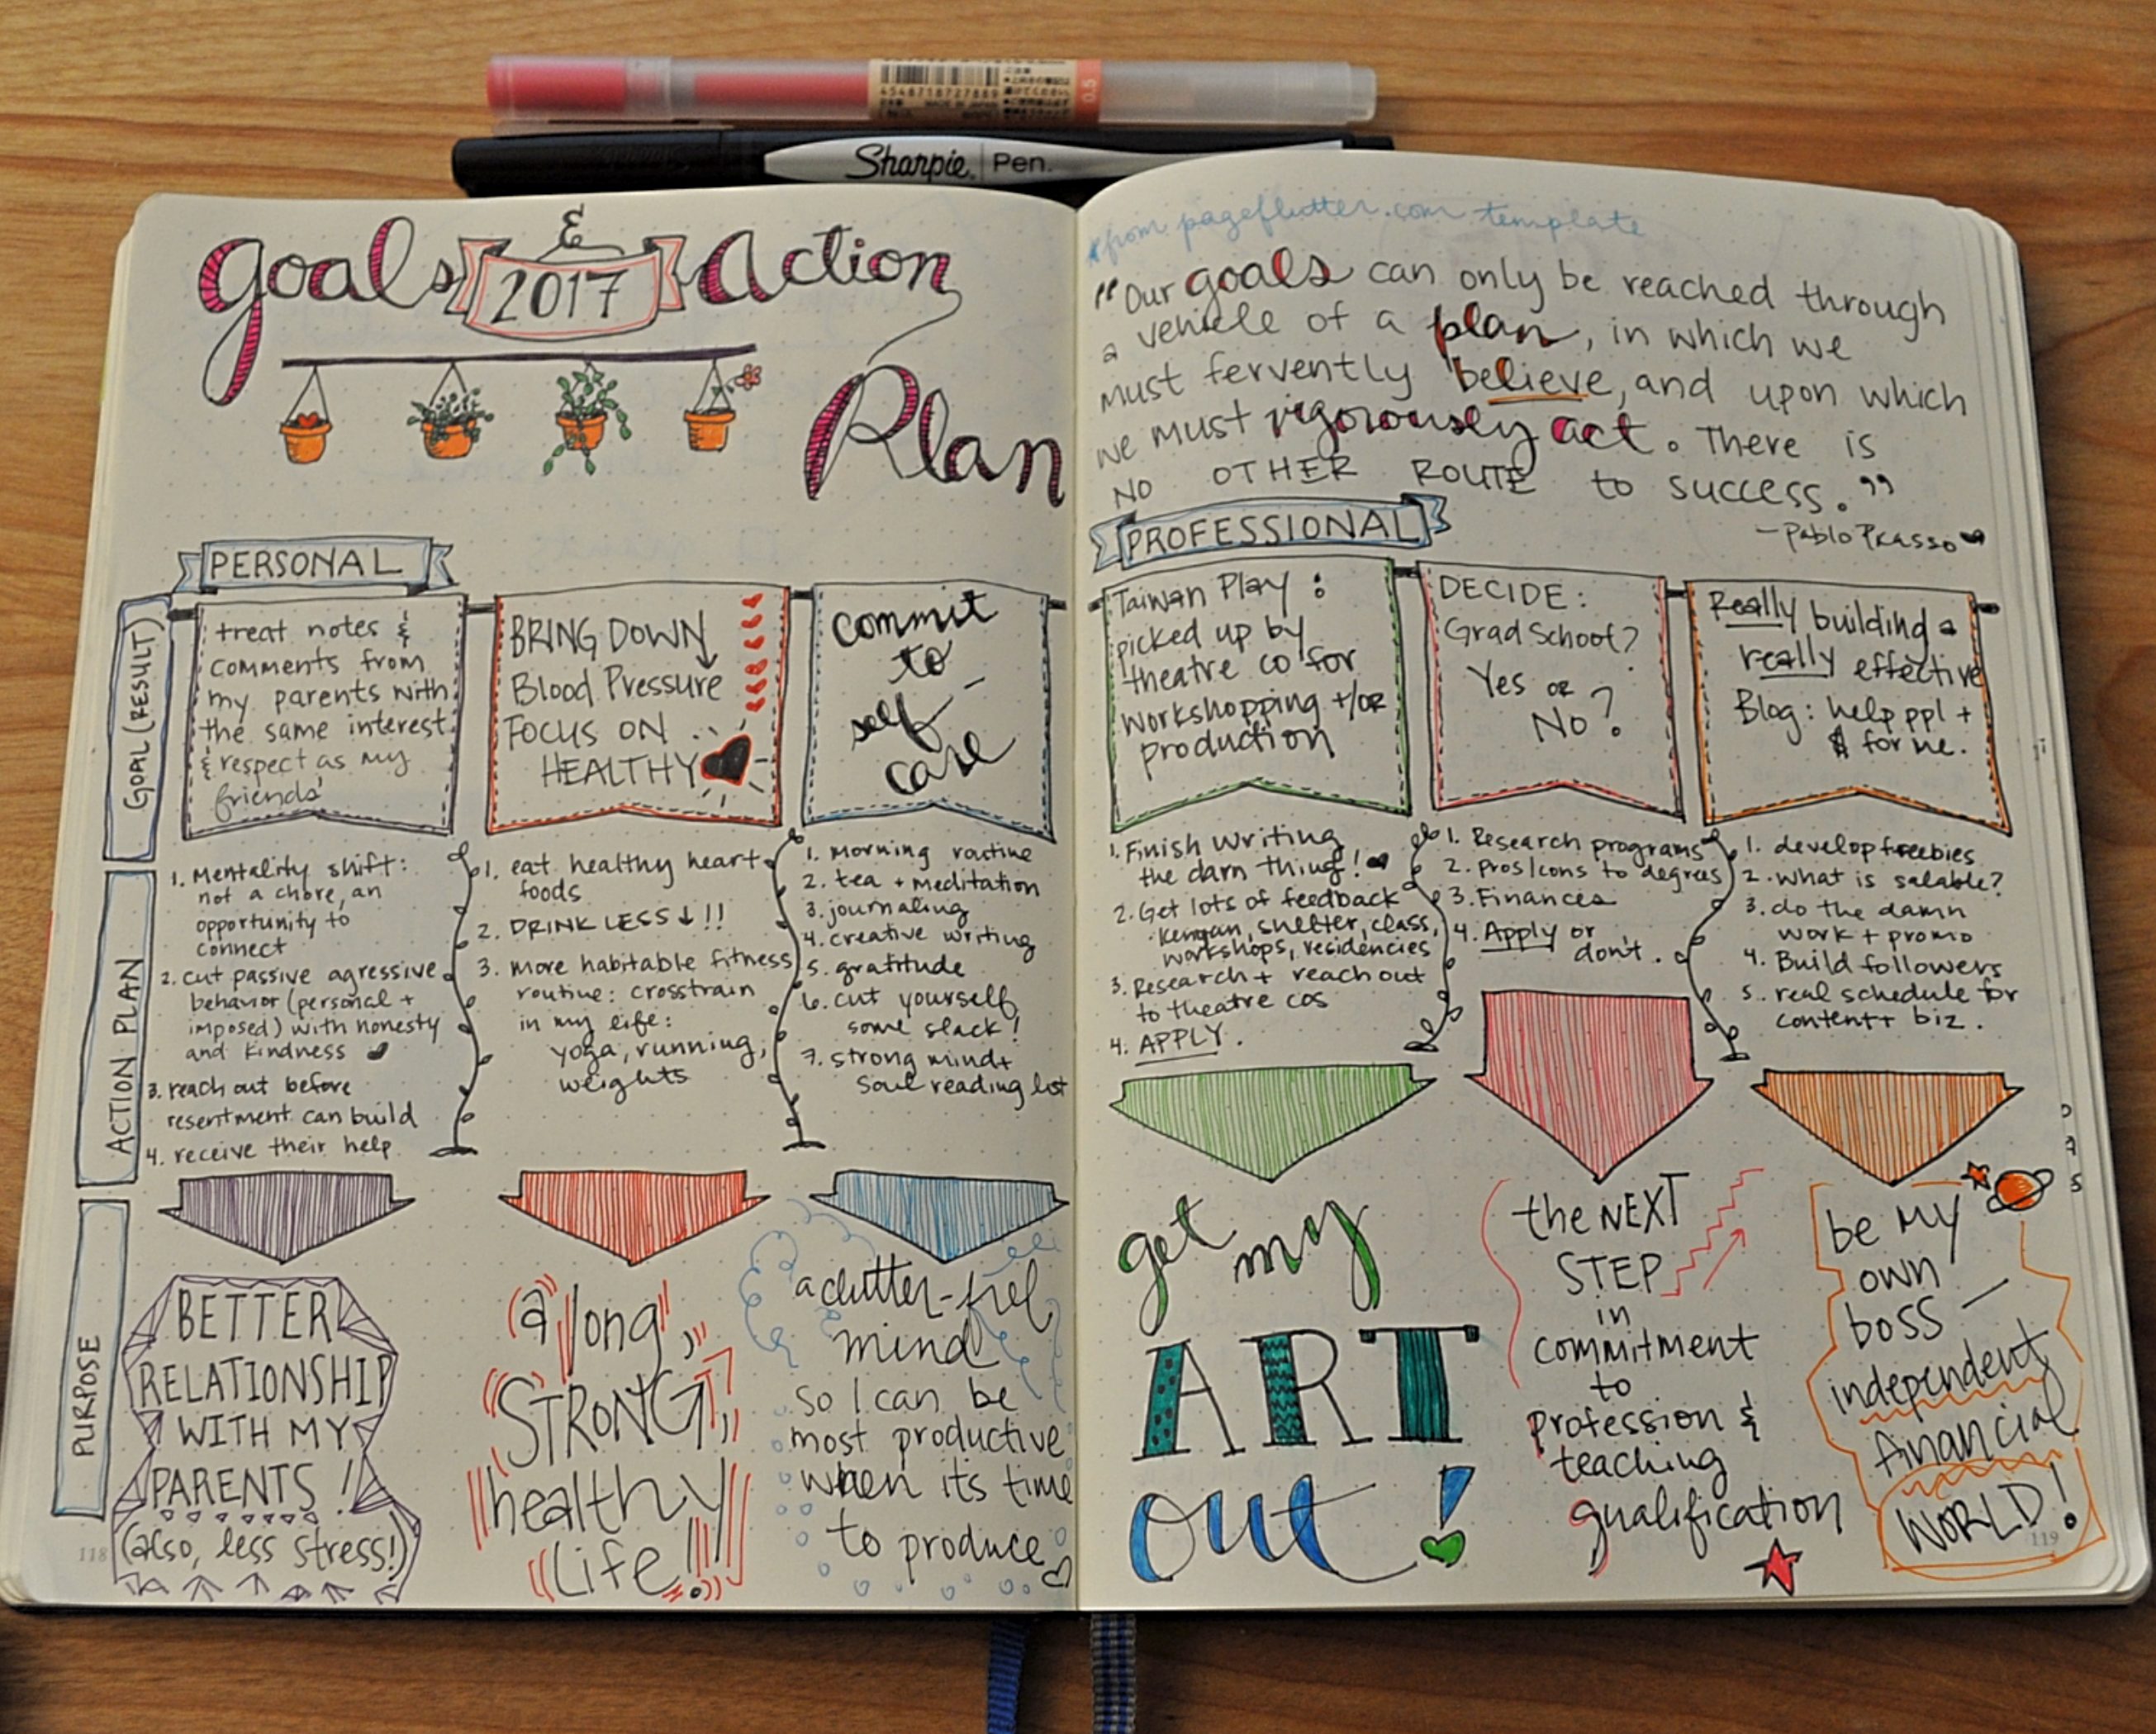 4548718727889
MADE IN JAPAN
0.5
Sharpie Pen.
goals & Action
2017
Plan
PERSONAL
GOAL (RESULT)
treat notes &
comments from
my parents with
the same interest
& respect as my
friends'
BRING DOWN
Blood Pressure
FOCUS ON
HEALTHY
commit
to
self-
care
ACTION PLAN
1. Mentality shift:
not a chore, an
opportunity to
connect
2. cut passive agressive
behavior (personal +
imposed) with honesty
and kindness
3. reach out before
resentment can build
4. receive their help
1. eat healthy heart
foods
2. DRINK LESS ↓ !!
3. more habitable fitness
routine: crosstrain
in my life:
yoga, running,
weights
1. morning routine
2. tea + meditation
3. journaling
4. creative writing
5. gratitude
6. cut yourself
some slack!
7. strong mind +
soul reading list
PURPOSE
BETTER
RELATIONSHIP
WITH MY
PARENTS!
(also, less stress!)
a long,
STRONG,
healthy
Life!!
a clutter-free
mind
so I can be
most productive
when its time
to produce
118
*from pageflutter.com template
"Our goals can only be reached through
a vehicle of a plan, in which we
must fervently believe, and upon which
we must vigorously act. There is
NO OTHER ROUTE to success."
- Pablo Picasso
PROFESSIONAL
Taiwan Play:
picked up by
theatre co for
workshopping +/or
production
DECIDE:
Grad School?
Yes or
No?
Really building a
really effective
Blog: help ppl +
$ for me.
1. Finish writing
the darn thing!
2. Get lots of feedback
shelter, class,
workshops, residencies
3. Research + reach out
to theatre cos
4. APPLY.
1. Research programs
2. Pros/cons to degrees
3. Finances
4. Apply or
don't.
1. develop freebies
2. what is salable?
3. do the damn
work + promo
4. Build followers
5. real schedule for
content + biz.
get my
ART
out!
the NEXT
STEP
in
commitment
to
profession &
teaching
qualification
be my
own
boss -
independent
financial
WORLD!
119